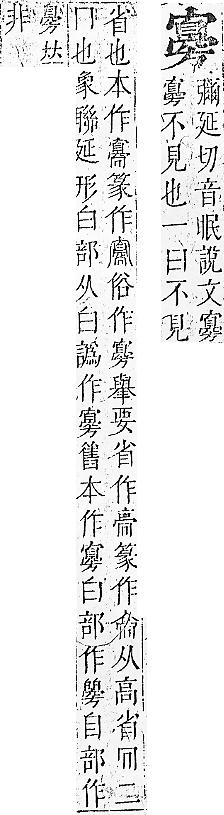 㝰
彌延切音眠說文㝰
㝰不見也一曰不見
省也本作篆作俗作㝰舉要省作篆作从高省冂二
冂也象聯延形白部从白譌作㝰舊本作㝰白部作臱自部作
臱𠀤
非